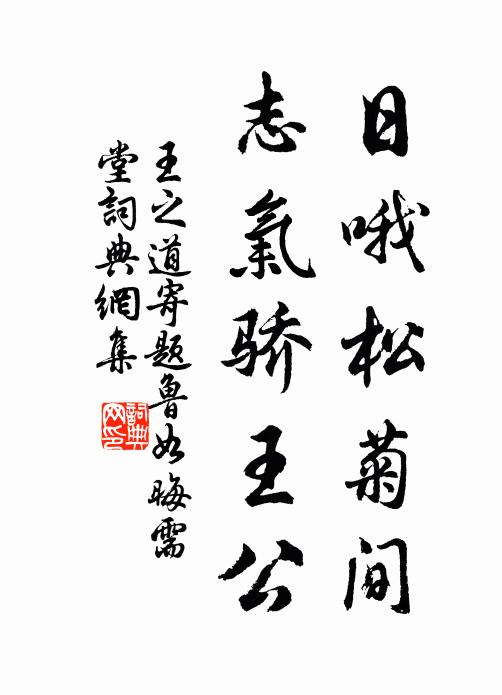 日哦松菊间
志氣骄王公
王之道寄题魯如晦需
堂詞典網集
詞典
网印